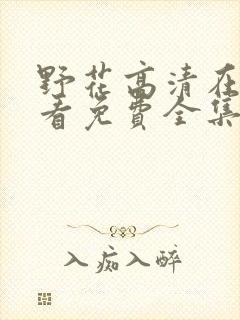 野花高清在
看免费全集
入痴入醉